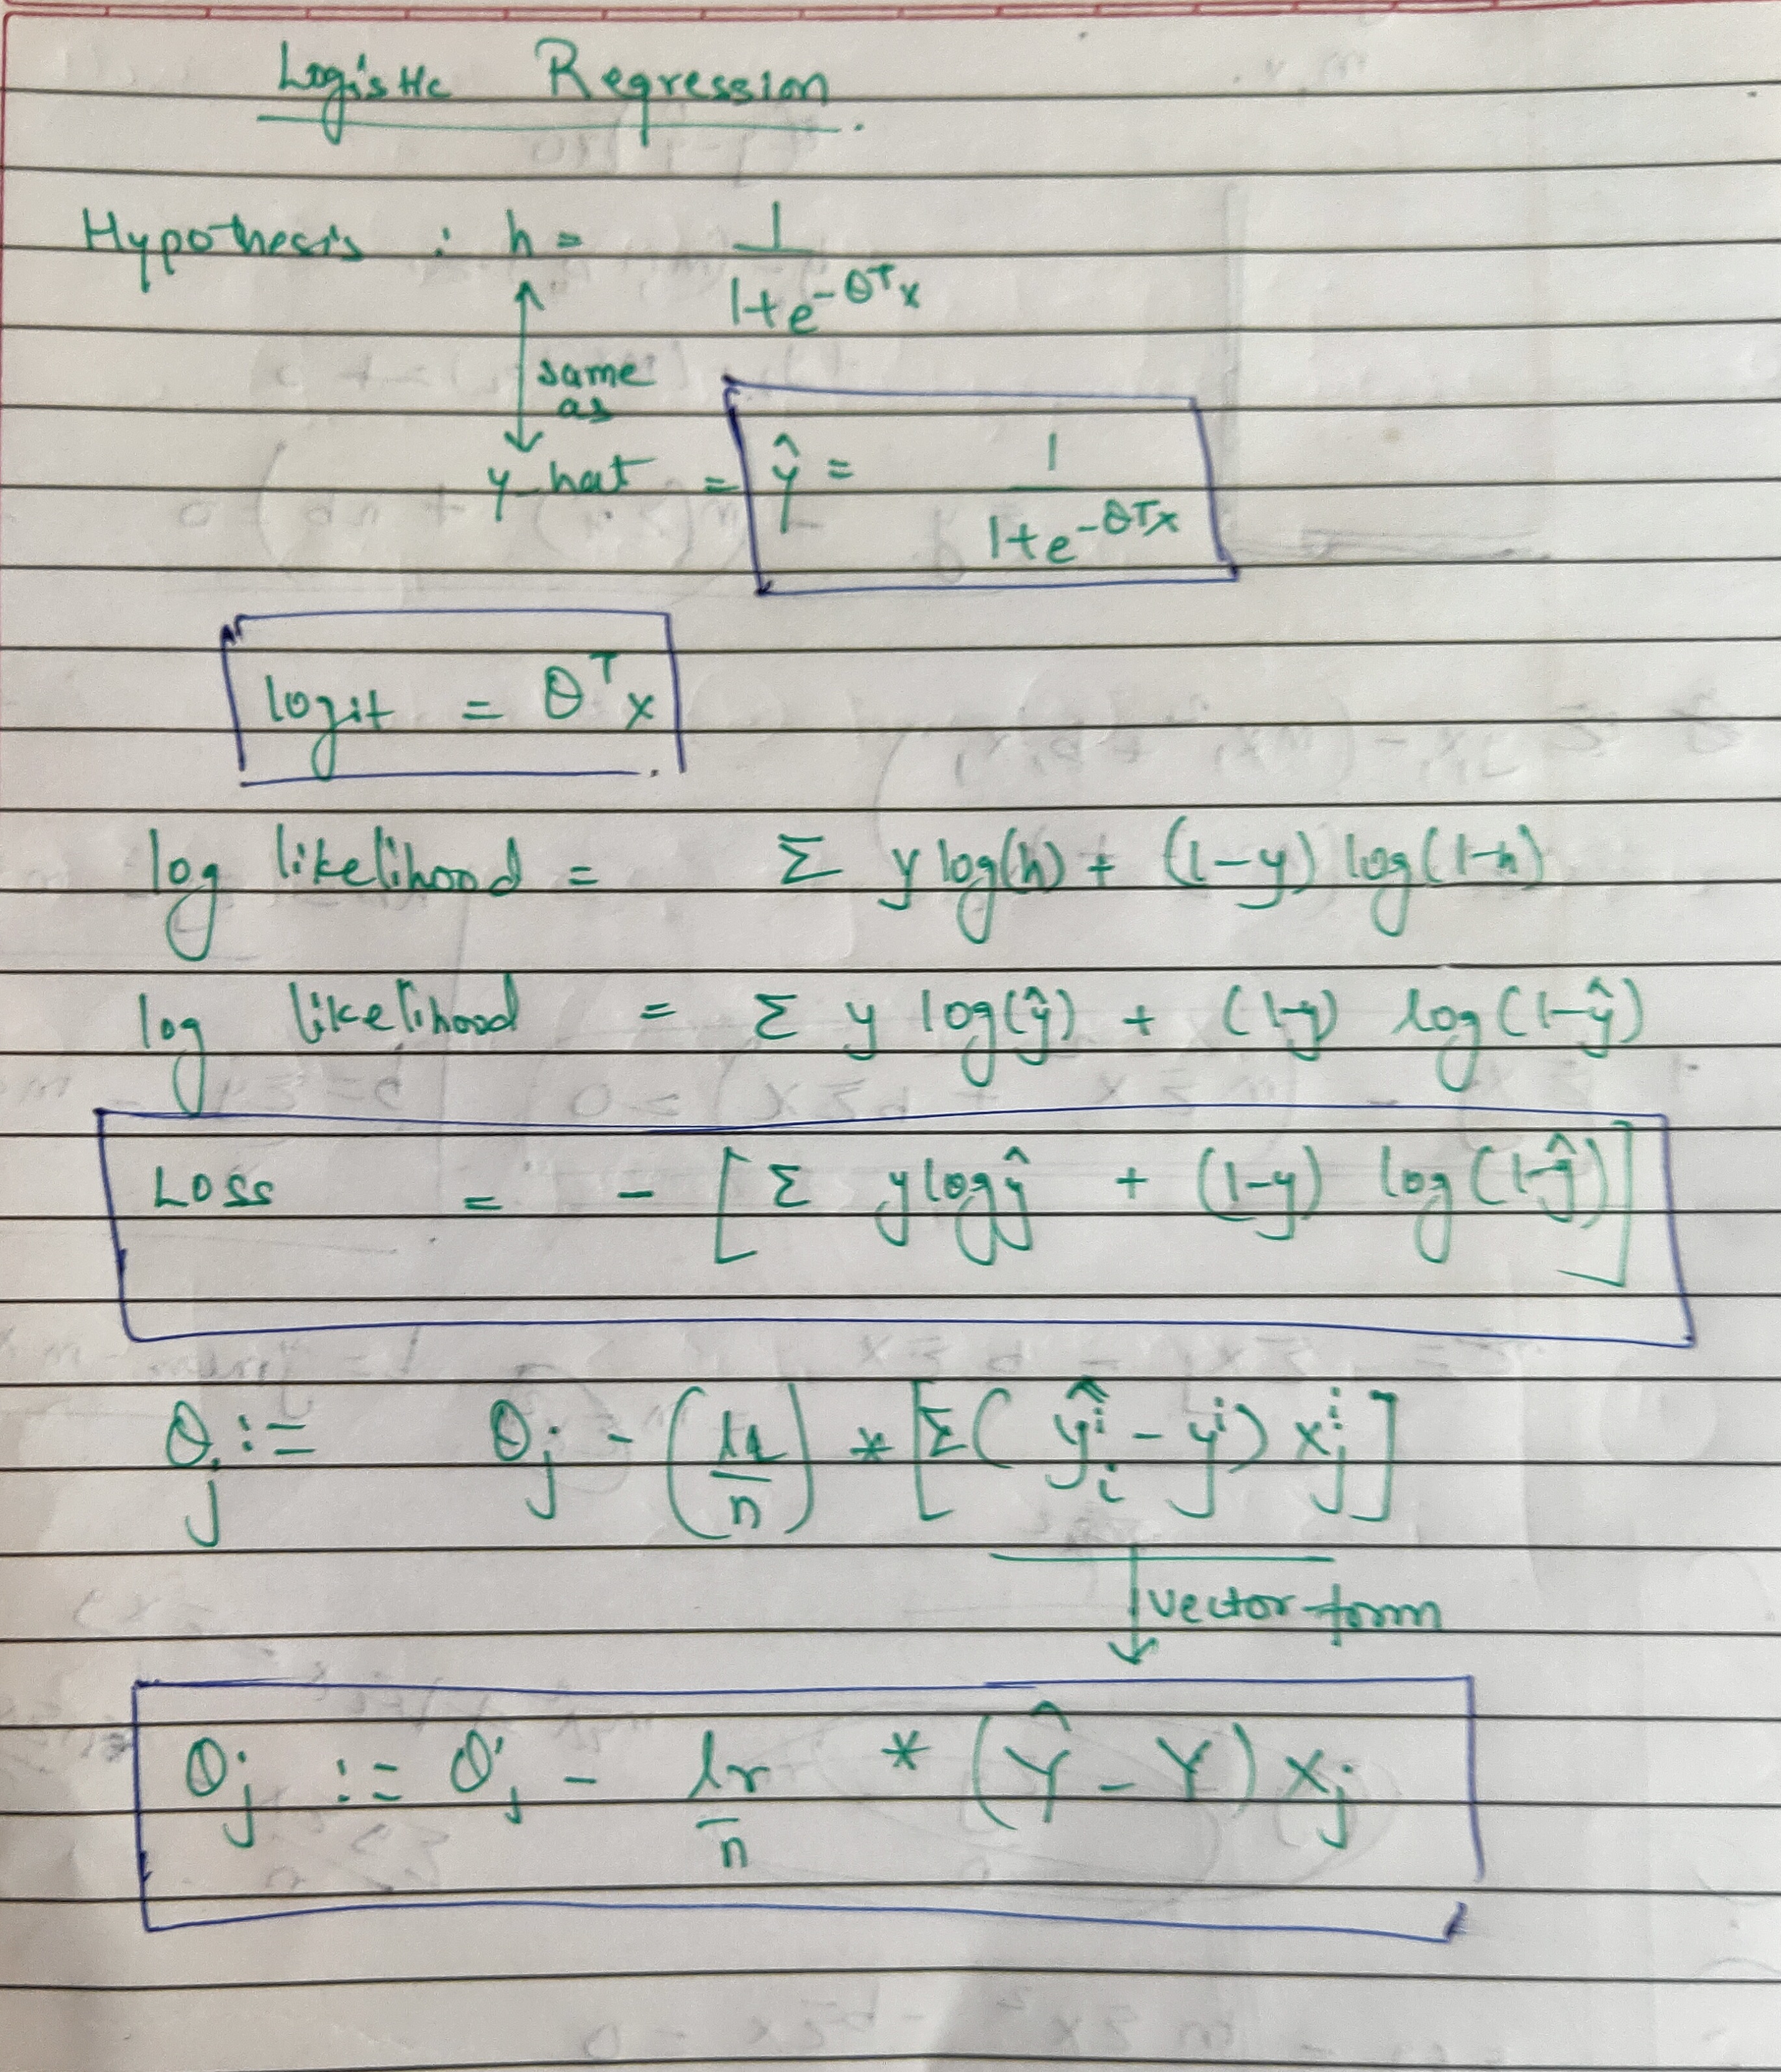 Logistic Regression.
Hypothesis : h = 1 / 1+e^-θ^T x
same
as
y-hat = ŷ = 1 / 1+e^-θ^T x
logit = θ^T x
log likelihood = Σ y log(h) + (1-y) log(1-h)
log likelihood = Σ y log(ŷ) + (1-y) log(1-ŷ)
Loss = - [Σ y log ŷ + (1-y) log(1-ŷ)]
θ_j := θ_j - (lr/n) * [Σ_i (ŷ^i - y^i) x_j^i]
vector form
θ_j := θ_j - lr/n * (Ŷ - Y) X_j